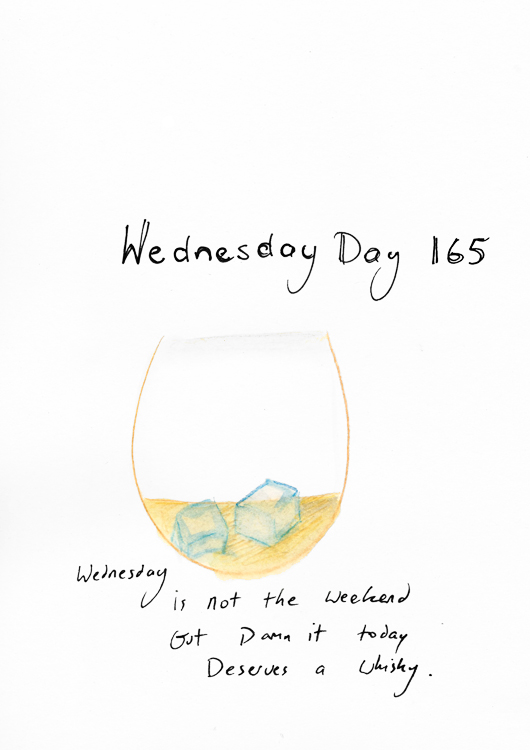 Wednesday Day 165
Wednesday
is not the weekend
But Damn it today
Deserves a whisky.